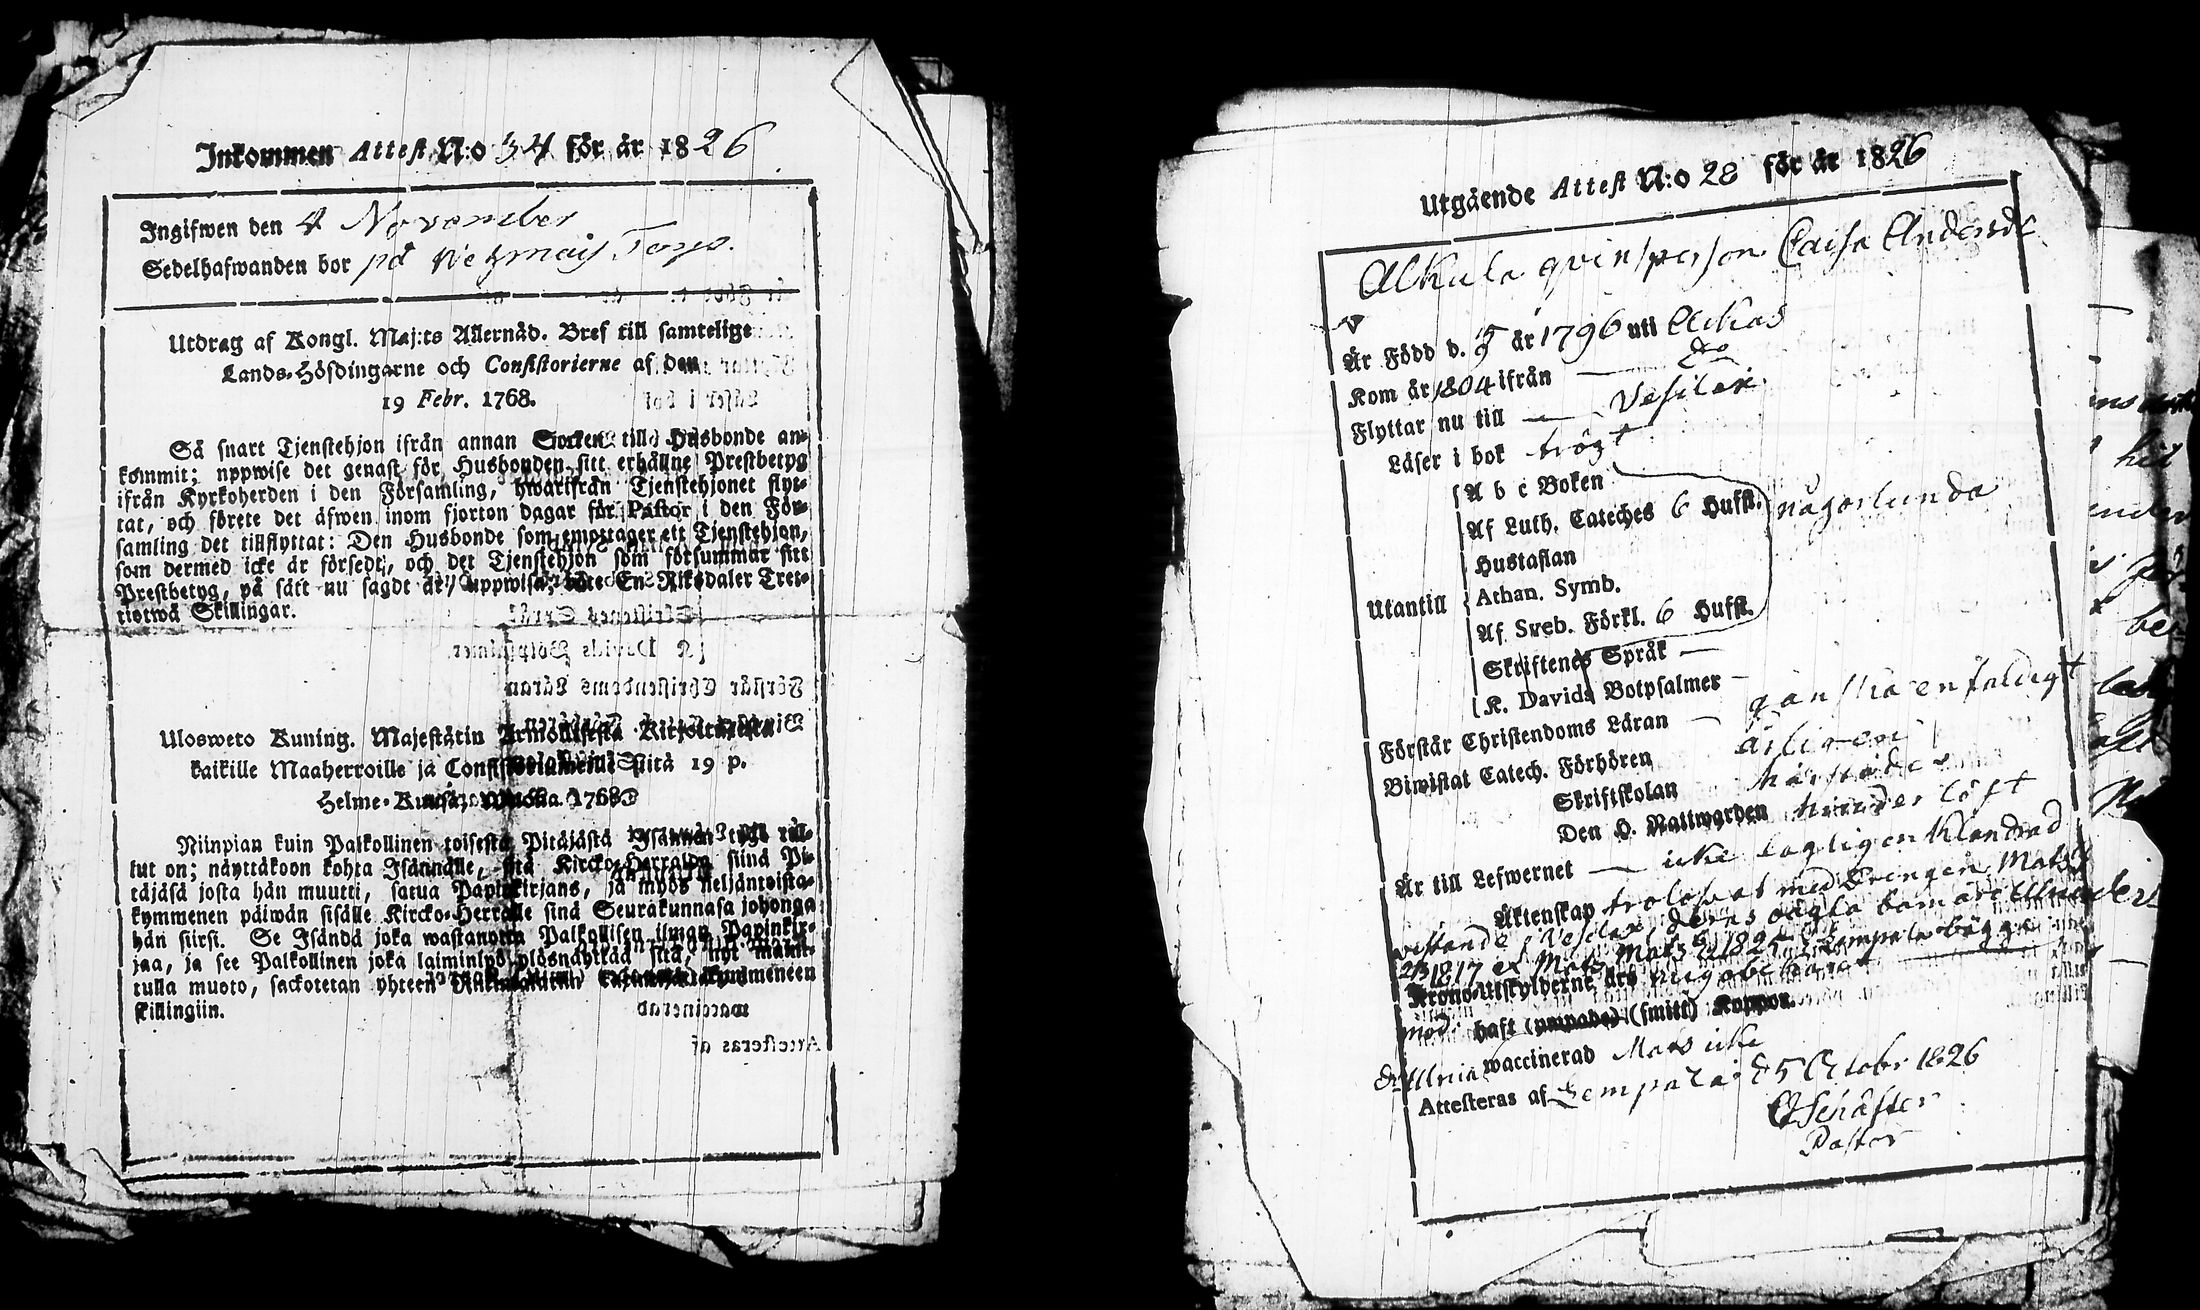 Inkommen Attest N:o 34 för år 1826
Ingifwen den 4 November
Sedelhafwanden bor på Wetzmais Torp.
Utdrag af Kongl. Maj:ts Allernåd. Bref till samtelige
Lands-Höfdingarne och Consistorierne af den
19 Febr. 1768.
Så snart Tjenstehjon ifrån annan Socken till Husbonde an-
kommit; uppwise det genast för Husbonden sitt erhållne Prestbetyg
ifrån Kyrkoherden i den Församling, hwarifrån Tjenstehjonet flyt-
tat, och förete det äfwen inom fjorton dagar för Pastor i den För-
samling det tillflyttat: Den Husbonde som emottager ett Tjenstehjon,
som dermed icke är försedt, och det Tjenstehjon som försummar sitt
Prestbetyg, på sätt nu sagdt är, uppwisa, böte En Riksdaler Tret-
tiotwå Skillingar.
Ulosweto Kuning. Majestätin Armollisesta Kirjoituxesta
kaikille Maaherroille ja Consistoriumeille siitä 19 p.
Helme-Kuusa, Wuonna 1768
Niinpian kuin Palkollinen toisesta Pitäjästä Isännän tygö tul-
lut on; näyttäkoon kohta Isännälle, sitä Kircko-Herralda siinä Pi-
täjäsä josta hän muutti, satua Papinkirjans, ja myös neljäntoista-
kymmenen päiwän sisälle Kircko-Herralle sinä Seurakunnasa johonga
hän siirsi. Se Isändä joka wastanotta Palkollisen ilman Papinkir-
jaa, ja see Palkollinen joka laiminlyö ylösnäyttää sitä, nyt mainit-
tulla muoto, sackotetan yhteen Riikintaleriin kolmeenkymmeneen
skillingiin.
Utgående Attest N:o 28 för år 1826
Alkula qvinsperson Caisa Andersdr
Är Född d. 5/9 år 1796 uti Ackas
Kom år 1804 ifrån — do
Flyttar nu till — Vesilax
Läser i bok trögt
Utantill
A b c Boken
Af Luth. Cateches 6 Hufst. någorlunda
Hustaflan
Athan. Symb.
Af Sveb. Förkl. 6 Hufst.
Skriftenes Språk —
K. Davids Botpsalmer —
Förstår Christendoms Läran — ganska enfaldigt
Biwistat Catech. Förhören årligen
Skriftskolan härstädes
Den H. Nattwarden hindeslöst
Är till Lefwernet — icke lagligen klandrad
Äktenskap trolofvat med Drengen Mats
vistande i Vesilax, deras oägta barn äro Ulrica
2/3 1817 och Mats 1825 i Lempala bägge
Krono-Utskylderne äro
mod. haft (ympade) (smitt) Koppor
do Ulrica waccinerad Mats icke
Attesteras af Lempala d 5 Octobr 1826
Schäfter
Pastor